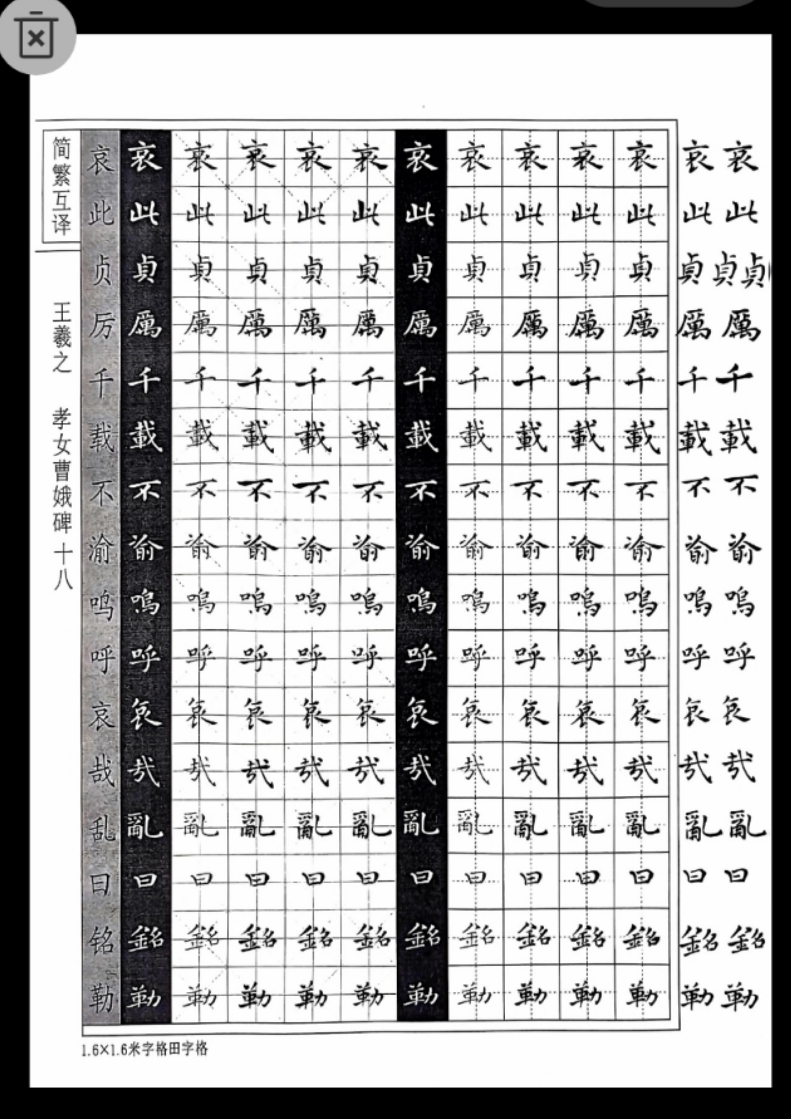 简繁互译
王羲之 孝女曹娥碑十八
哀 哀 哀 哀 哀 哀 哀 哀 哀 哀 哀 哀 哀
此 此 此 此 此 此 此 此 此 此 此 此 此
贞 貞 貞 貞 貞 貞 貞 貞 貞 貞 貞 貞 貞 貞
厉 厲 厲 厲 厲 厲 厲 厲 厲 厲 厲 厲 厲
千 千 千 千 千 千 千 千 千 千 千 千 千
载 載 載 載 載 載 載 載 載 載 載 載 載
不 不 不 不 不 不 不 不 不 不 不 不 不
渝 渝 渝 渝 渝 渝 渝 渝 渝 渝 渝 渝 渝
呜 嗚 嗚 嗚 嗚 嗚 嗚 嗚 嗚 嗚 嗚 嗚 嗚
呼 呼 呼 呼 呼 呼 呼 呼 呼 呼 呼 呼 呼
哀 哀 哀 哀 哀 哀 哀 哀 哀 哀 哀 哀 哀
哉 哉 哉 哉 哉 哉 哉 哉 哉 哉 哉 哉 哉
乱 亂 亂 亂 亂 亂 亂 亂 亂 亂 亂 亂 亂
曰 曰 曰 曰 曰 曰 曰 曰 曰 曰 曰 曰 曰
铭 銘 銘 銘 銘 銘 銘 銘 銘 銘 銘 銘 銘
勒 勒 勒 勒 勒 勒 勒 勒 勒 勒 勒 勒 勒
1.6×1.6米字格田字格